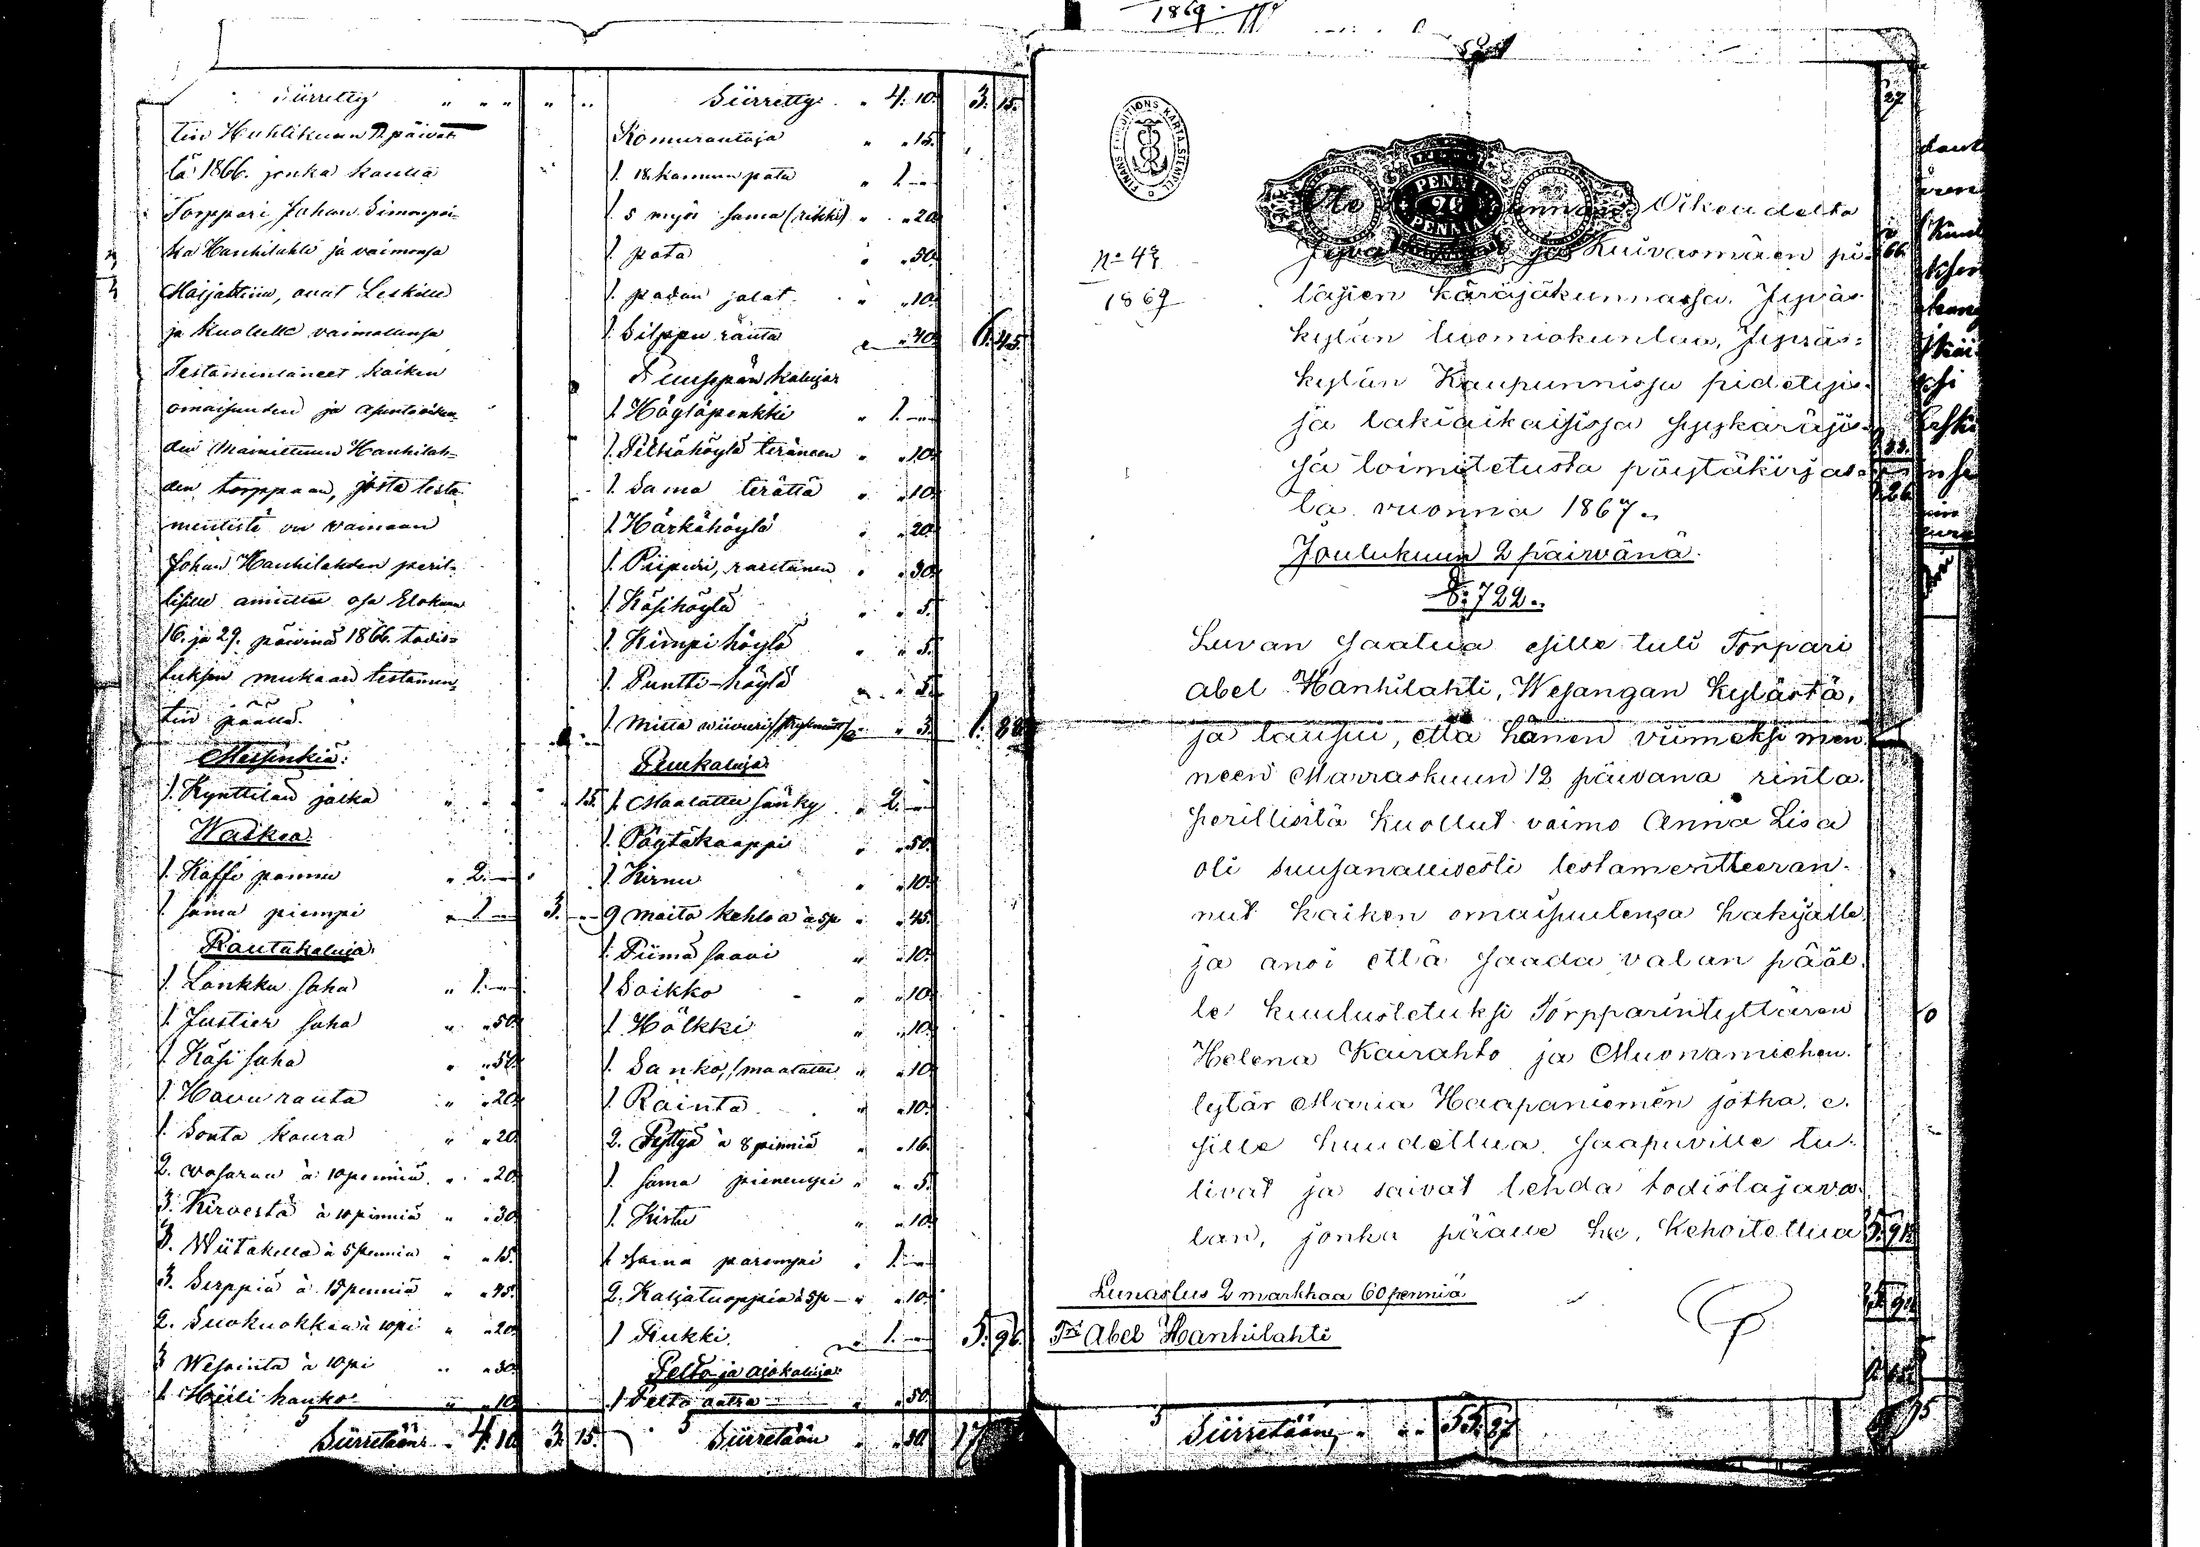 1869.
Siirretty " " " " "
tin Huhtikuun päiväl-
tä 1866. jonka kautta
Torppari Johan Simonpoi-
ka Hanhilahti ja vaimonsa
Maijastiina, ovat Leskelle
ja kuolulle vaimollensa
Testamintäneet kaiken
omaisuuden ja asunto oikeu-
den mainittuun Hanhilah-
den torppaan, josta testa-
mentistä on vainaan
Johan Hanhilahden peril-
lisille annettu osa Elokuun
16. ja 29. päivinä 1866. todis-
tuksen mukaan testamen-
tin päällä.
Messinkiä:
1. Kynttilän jalka " " 15.
Waskea.
1. Kaffi pannu " 2. —
1. sama piempi " 1. — 3. —
Rautakaluja
1. Lankku saha " 1. —
1. Justier saha " " 50.
1. Käsi saha " " 50.
1. Havu rauta " " 20.
1. Sonta koura " " 20.
2. vasaraa à 10 penniä " " 20.
3. Kirvestä à 10 pinniä " " 30.
3. Wiitaketta à 5 penniä " " 15.
3. Serppiä à 15 penniä " " 45.
2. Suokuokkaa à 10 pi " " 20.
3 Wesointa à 10 pi " " 30.
1. Hiili hanko " " 10.
5 Siirretään " 4. 10. 3. 15.
Siirretty " 4. 10. 3. 15.
Komurautoja " " 15.
1. 18. kannun pata " 1. —
1. 5 myös sama (rikki) " " 20.
1. pata " " 50.
1. padan jalat " " 10.
1. Silppu rauta " " 40. 6. 45.
Puusepän kaluja
1. Höyläpenkki " 1. —
1. Peltsähöylä teräneen " " 10.
1. Sama terättä " " 10.
1. Härkähöylä " " 20.
1. Piipuri, rautanen " " 30.
1. Käsihöylä " " 5.
1. Kimpi höylä " " 5.
1. Puntti-höylä " " 5.
1. Mitta " " 3. 1. 88.
Puukaluja
1. Maalattu sänky " 2. —
1. Pöytäkaappi " " 50.
1. Kirnu " " 10.
9 maito kehloa à 5p " " 45.
1. Piimä saavi " " 10.
1 Saikko " " 10.
1 Hölkki " " 10.
1. Sanko, /maalattu " " 10.
1. Rainta " " 10.
2. Pyttyä à 8 pinniä " " 16.
1. sama pienempi " " 5.
1. Kistu " " 10.
1 sama parempi " 1. —
2. Kaljatuoppia à 5p " " 10.
1 Rukki " 1. — 5. 96.
Pelto ja ajokaluja
1 Pelto aatra " " 50.
5 Siirretään " " 50. 17
FINANS EXPEDITIONS KARTA STEMPEL
PENNI
PENNIÄ
No 47
1869
Oikeudelta
ja Kuivasmäen pi-
täjien käräjäkunnassa, Jyväs-
kylän tuomiokuntaa, Jyväs-
kylän Kaupunnissa pidetyis-
sä lakiaikaisissa syyskäräjis-
sä toimitetusta pöytäkirjas-
ta vuonna 1867.
Joulukuun 2 päivänä.
§: 722.
Luvan saatua esille tuli Torpari
Abel Hanhilahti, Wesangan kylästä,
ja lausui, että hänen viimeksi men-
neen Marraskuun 12 päivänä rinta
perillisitä kuollut vaimo Anna Lisa
oli suusanallisesti testamentteeran-
nut kaiken omaisuutensa hakijalle
ja anoi että saada valan pääl-
le kuulustetuksi Torpparintyttären
Helena Kairahto ja Muonamiehen
tytär Maria Haapaniemen jotka, e-
sille huudettua, saapuville tu-
livat ja saivat tehdä todistajava-
lan, jonka päälle he, kehoitettua
Lunastus 2 markkaa 60 penniä
Tri Abel Hanhilahti
5 Siirretään " " " 55. 87